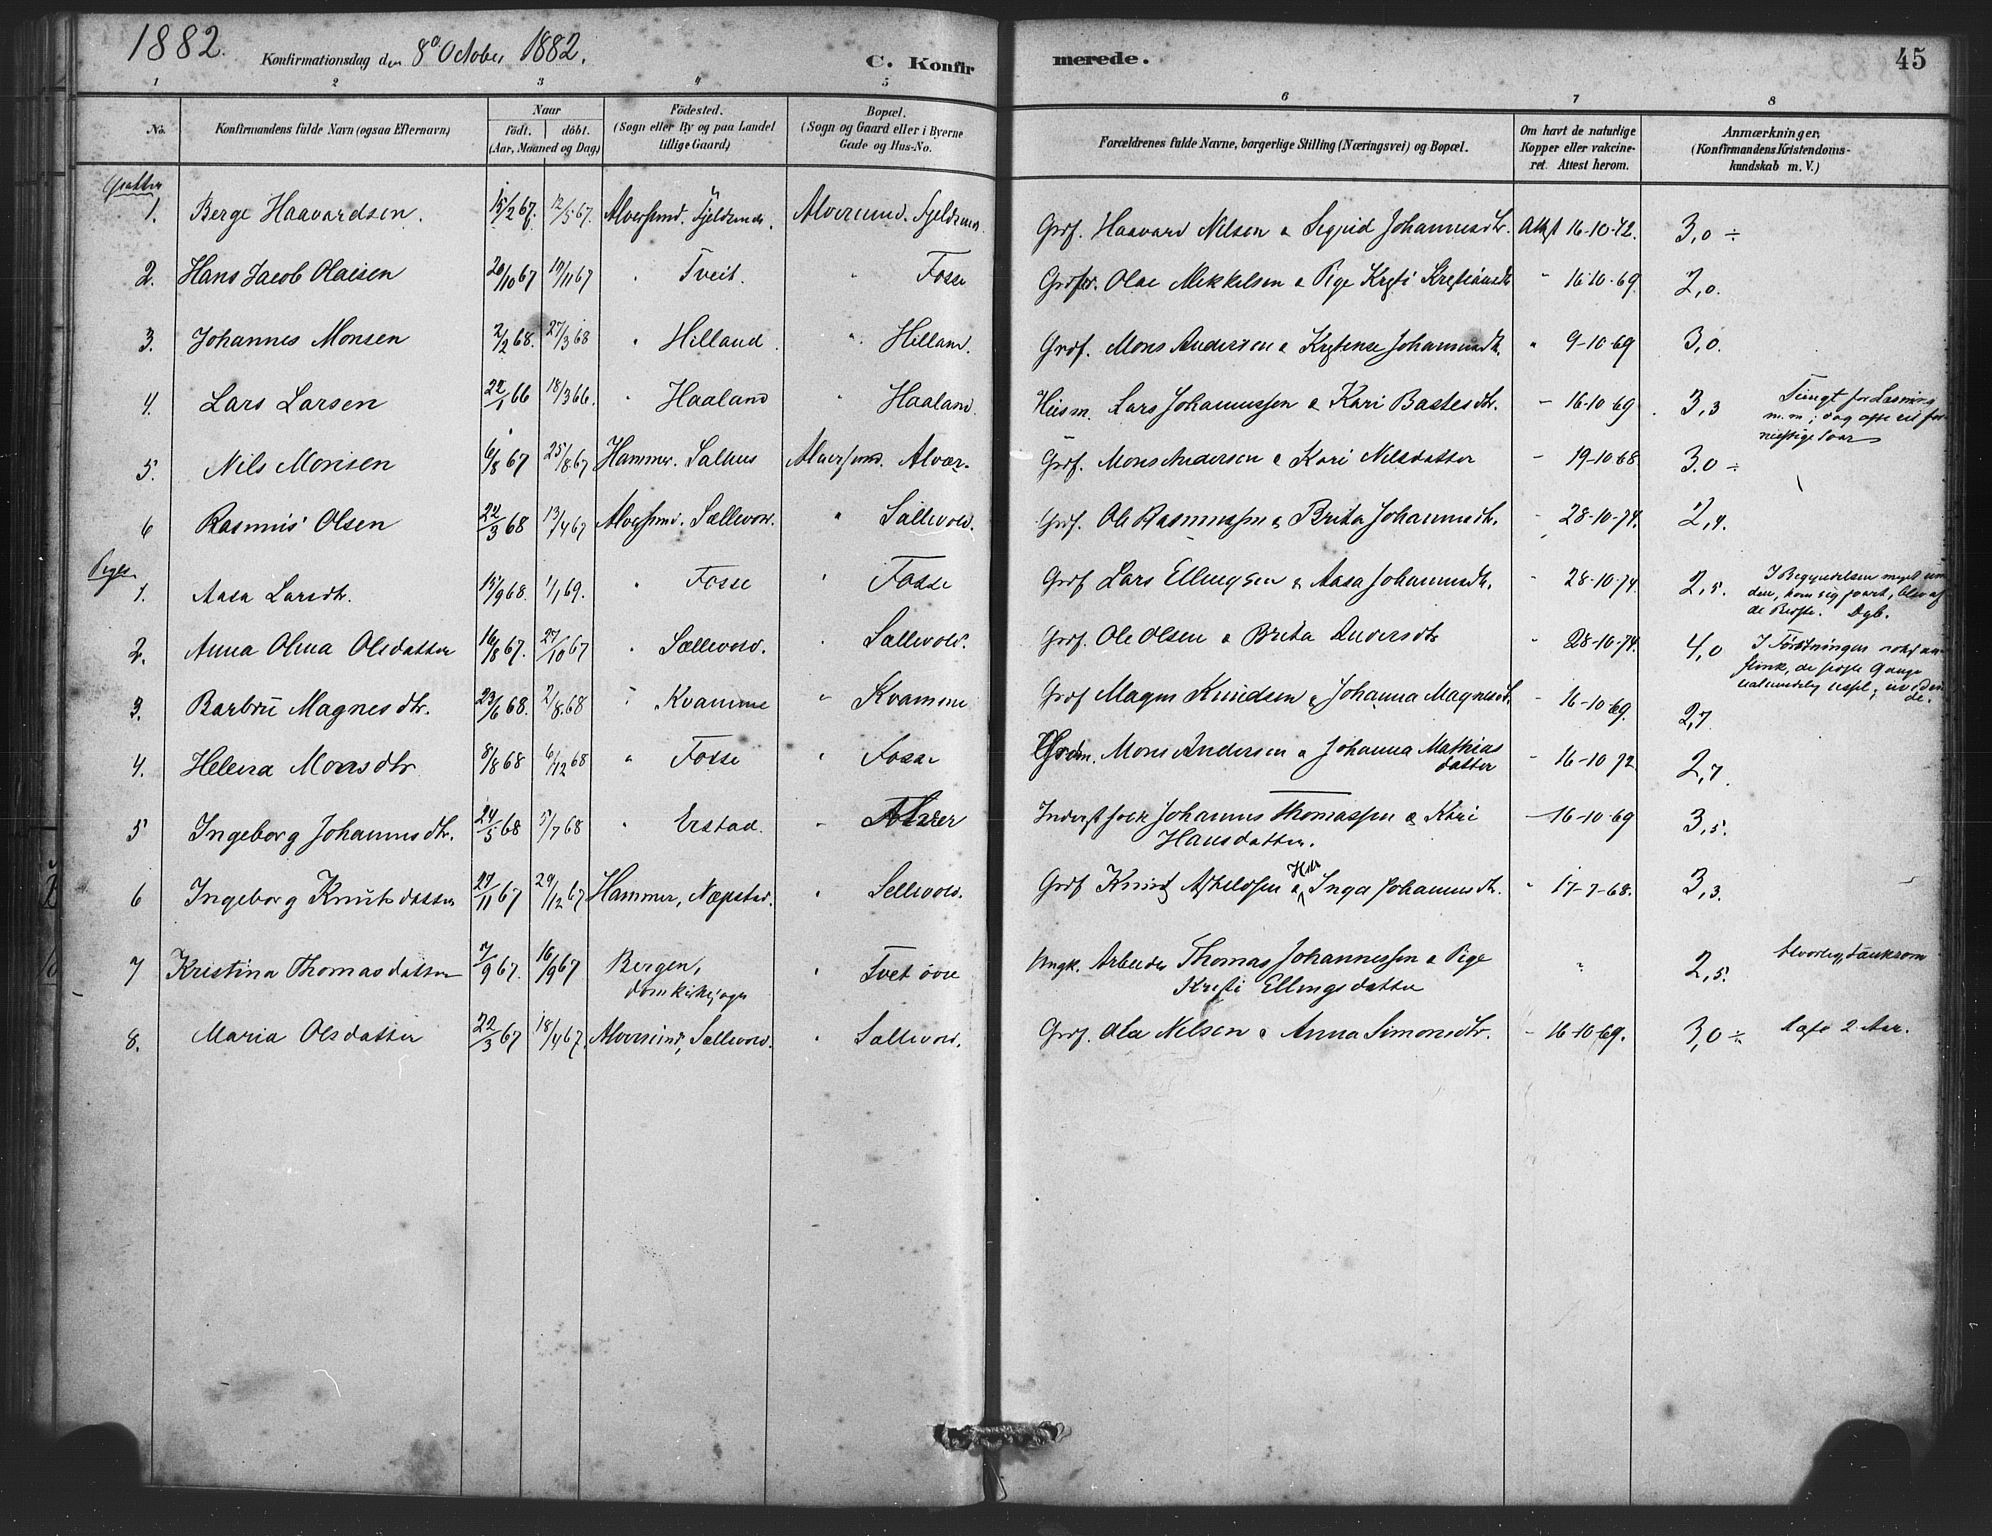 1882.
Konfirmationsdag den 8de October 1882.
C. Konfir
merede.
45
1 2 3 4 5 6 7 8
No.
Konfirmandens fulde Navn (ogsaa Efternavn)
Naar
födt. döbt.
(Aar, Maaned og Dag)
Födested.
(Sogn eller By og paa Landet
tillige Gaard)
Bopæl.
(Sogn og Gaard eller i Byerne
Gade og Hus-No.
Forældrenes fulde Navne, borgerlige Stilling (Næringsvei) og Bopæl.
Om havt de naturlige
Kopper eller vakcine-
ret. Attest herom.
Anmærkninger,
(Konfirmandens Kristendoms-
kundskab m. V.)
Gutter
1. Berge Haavardsen. 15/2 67. 12/5 67. Alversund. Fjeldsende. Alversund. Fjeldsend. Grdf. Haavard Nilsen & Sigrid Johannesdtr. Attest 16-10-72. 3,0 ÷
2. Hans Jacob Olaisen 20/10 67 17/11 67 " Tveit. " Fosse Grdfr. Olae Mikkelsen & Pige Kristi Kristiansdtr " 16-10-69. 2,0.
3. Johannes Monsen 2/2 68. 27/3 68 " Hilland " Hilland. Grdf. Mons Andersen & Johannesdtr. " 9-10-69 3,0.
4. Lars Larsen 22/1 66 18/3 66. " Haaland " Haaland. Husm. Lars Johannessen & Kari Bastesdtr. " 16-10-69. 3,3 Tungt for Læsning
m.m; dog ofte ret for-
nuftige Svar
5. Nils Monsen 6/8 67 25/8 67 Hammer. Salhus Alversund. Alvær. Grdf. Mons Andersen & Kari Nilsdatter " 19-10-68. 3,0 ÷
6 Rasmus Olsen 22/3 68 13/4 67 Alversund. Sællevold. " Sællevold. Grdf. Ole Rasmussen & Brita Johannesdtr. " 28-10-74. 2,4.
Piger
1. Aasa Larsdtr. 15/9 68. 1/1 69. " Fosse " Fosse Grdf Lars Ellingsen & Aasa Johannesdtr. " 28-10-74. 2,5. I Begyndelsen meget
den, kom sig svært, blev af
de Bedste. Dgb.
2. Anna Olina Olsdatter 16/8 67. 27/10 67 " Sællevold. " Sællevold. Grdf. Ole Olsen & Brita Andersdtr " 28-10-74. 4,0 I
flink, de siste Gange
3. Barbru Magnesdtr. 23/6 68. 2/8 68 " Kvamme " Kvamme Grdf Magne Knudsen & Johanna Magnesdtr. " 16-10-69. 2,7
4. Helena Monsdtr 8/8 68 6/12 68 " Fosse " Fosse Mons Andersen & Johanna Mathias
datter " 16-10 72 2,7
5 Ingeborg Johannesdtr. 24/5 68 5/7 68 " Erstad. " Alvær Inderstfolk Johannes Thomassen & Kari
Hansdatter. " 16-10-69 3,5.
6 Ingeborg Knutsdatter 27/11 67 29/12 67 Hammer, Næpstad. " Sellevold. Grdf Knud Askeldsen & Inga Johannesdtr. " 17-7-68. 3,3.
7 Kristina Thomasdatter 7/9 67. 16/9 67 Bergen,
domkirkesogn " Tvet övre Ungk. Arbeider Thomas Johannessen & Pige
Kristi Ellingsdatter " 2,5. Alvorlig, tænksom
8. Maria Olsdatter 22/3 67 18/4 67. Alversund, Sellevold. " Sællevold. Grdf. Ola Nilsen & Anna Simonsdtr. " 16-10-69. 3,0 ÷ Læst 2 Aar.